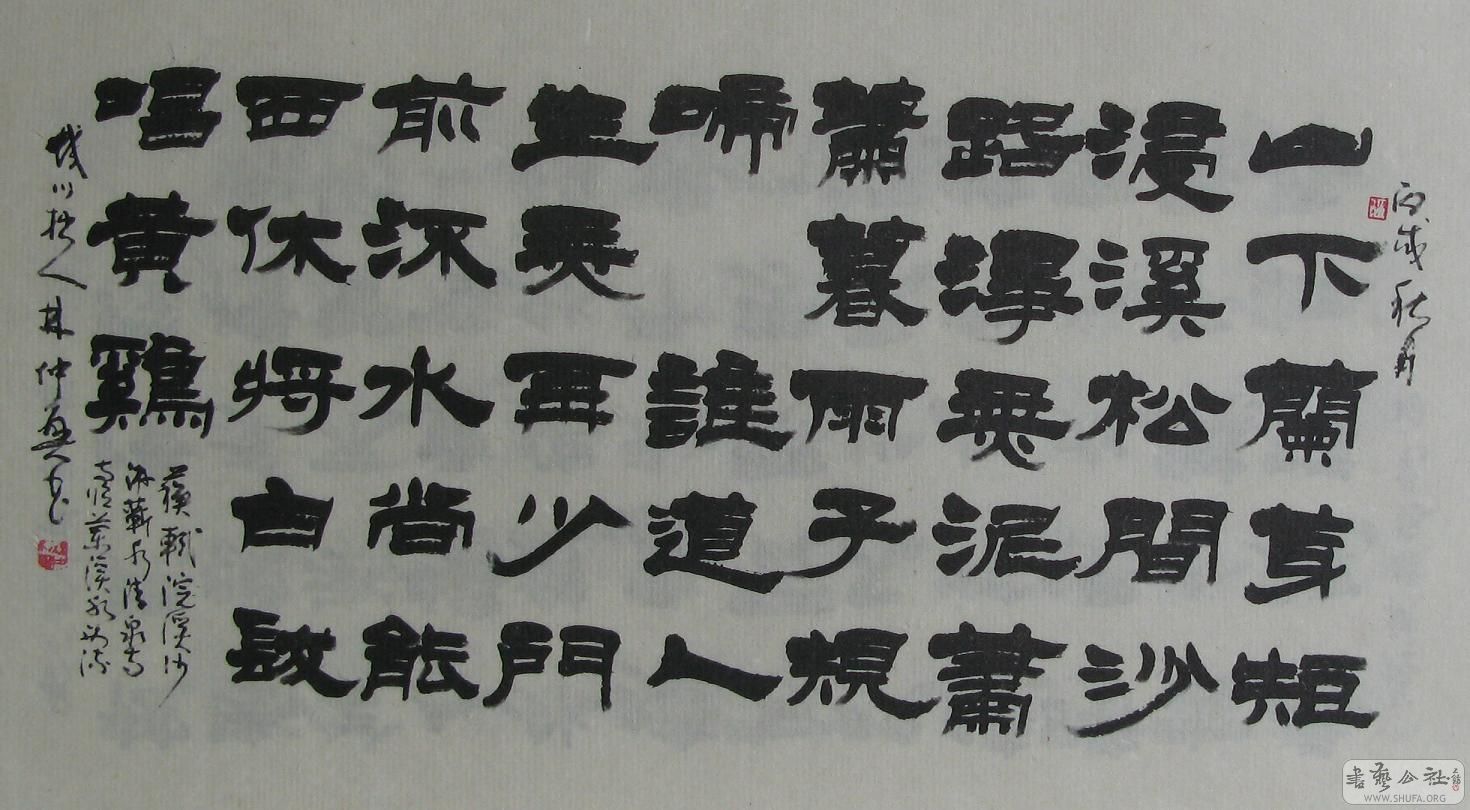 丙戌秋月
山下蘭芽短
浸溪松間沙
路淨無泥蕭
蕭暮雨子規
啼 誰道人
生無再少門
前流水尚能
西休將白髮
唱黃鷄
蘇軾浣溪沙
游蘄水清泉寺
寺临蘭溪水西流
川拙人林仲兴书
書藝公社
WWW.SHUFA.ORG